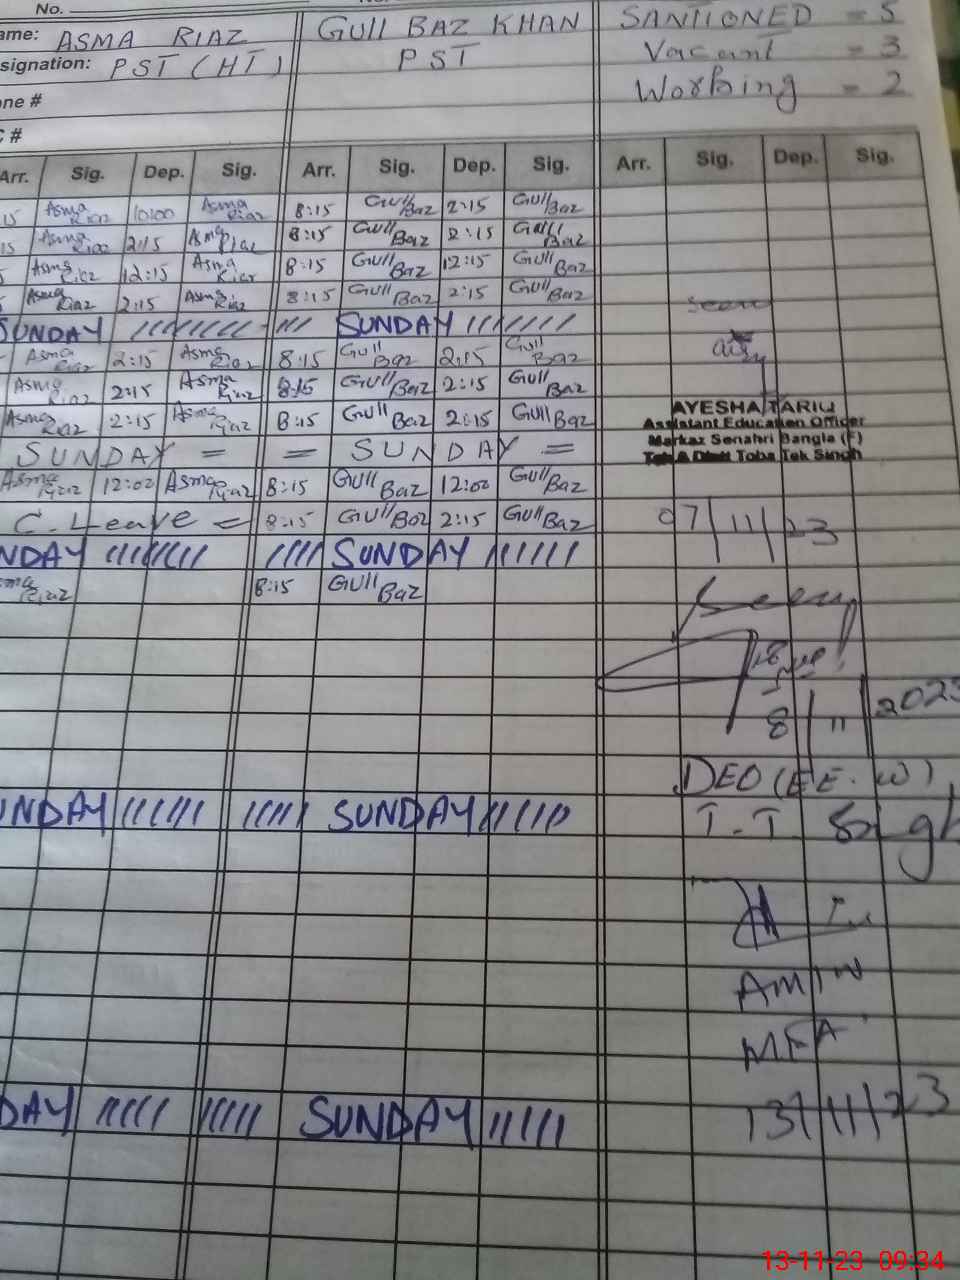 No.
ame: ASMA RIAZ GUll BAZ KHAN SANTIONED = 5
signation: PST (HT) PST Vacant = 3
one # Working = 2
C #
Arr. Sig. Dep. Sig. Arr. Sig. Dep. Sig. Arr. Sig. Dep. Sig.
15 Asma Riaz 10:00 Asma Riaz 8:15 Gull Baz 2:15 Gull Baz
15 Asma Riaz 2:15 Asma Riaz 8:15 Gull Baz 2:15 Gull Baz
Asma Riaz 12:15 Asma Riaz 8:15 Gull Baz 12:15 Gull Baz
Asma Riaz 2:15 Asma Riaz 8:15 Gull Baz 2:15 Gull Baz
SUNDAY SUNDAY
Seen
Asma Riaz 2:15 Asma Riaz 8:15 Gull Baz 2:15 Gull Baz
Asma Riaz 2:15 Asma Riaz 8:15 Gull Baz 2:15 Gull Baz
Asma Riaz 2:15 Asma Riaz 8:15 Gull Baz 2:15 Gull Baz
AYESHA TARIQ
Assistant Education Officer
Markaz Senahri Bangla (F)
Teh & Distt Toba Tek Singh
SUNDAY = = SUNDAY =
Asma Riaz 12:02 Asma Riaz 8:15 Gull Baz 12:02 Gull Baz
C. Leave = 8:15 Gull Baz 2:15 Gull Baz 07/11/23
NDAY SUNDAY
sma Riaz 8:15 Gull Baz
Seen
8/11/2023
DEO (EE.W),
UNDAY SUNDAY T.T Singh
AMIN
MEA
DAY SUNDAY 13/11/23
13-11-23 09:34